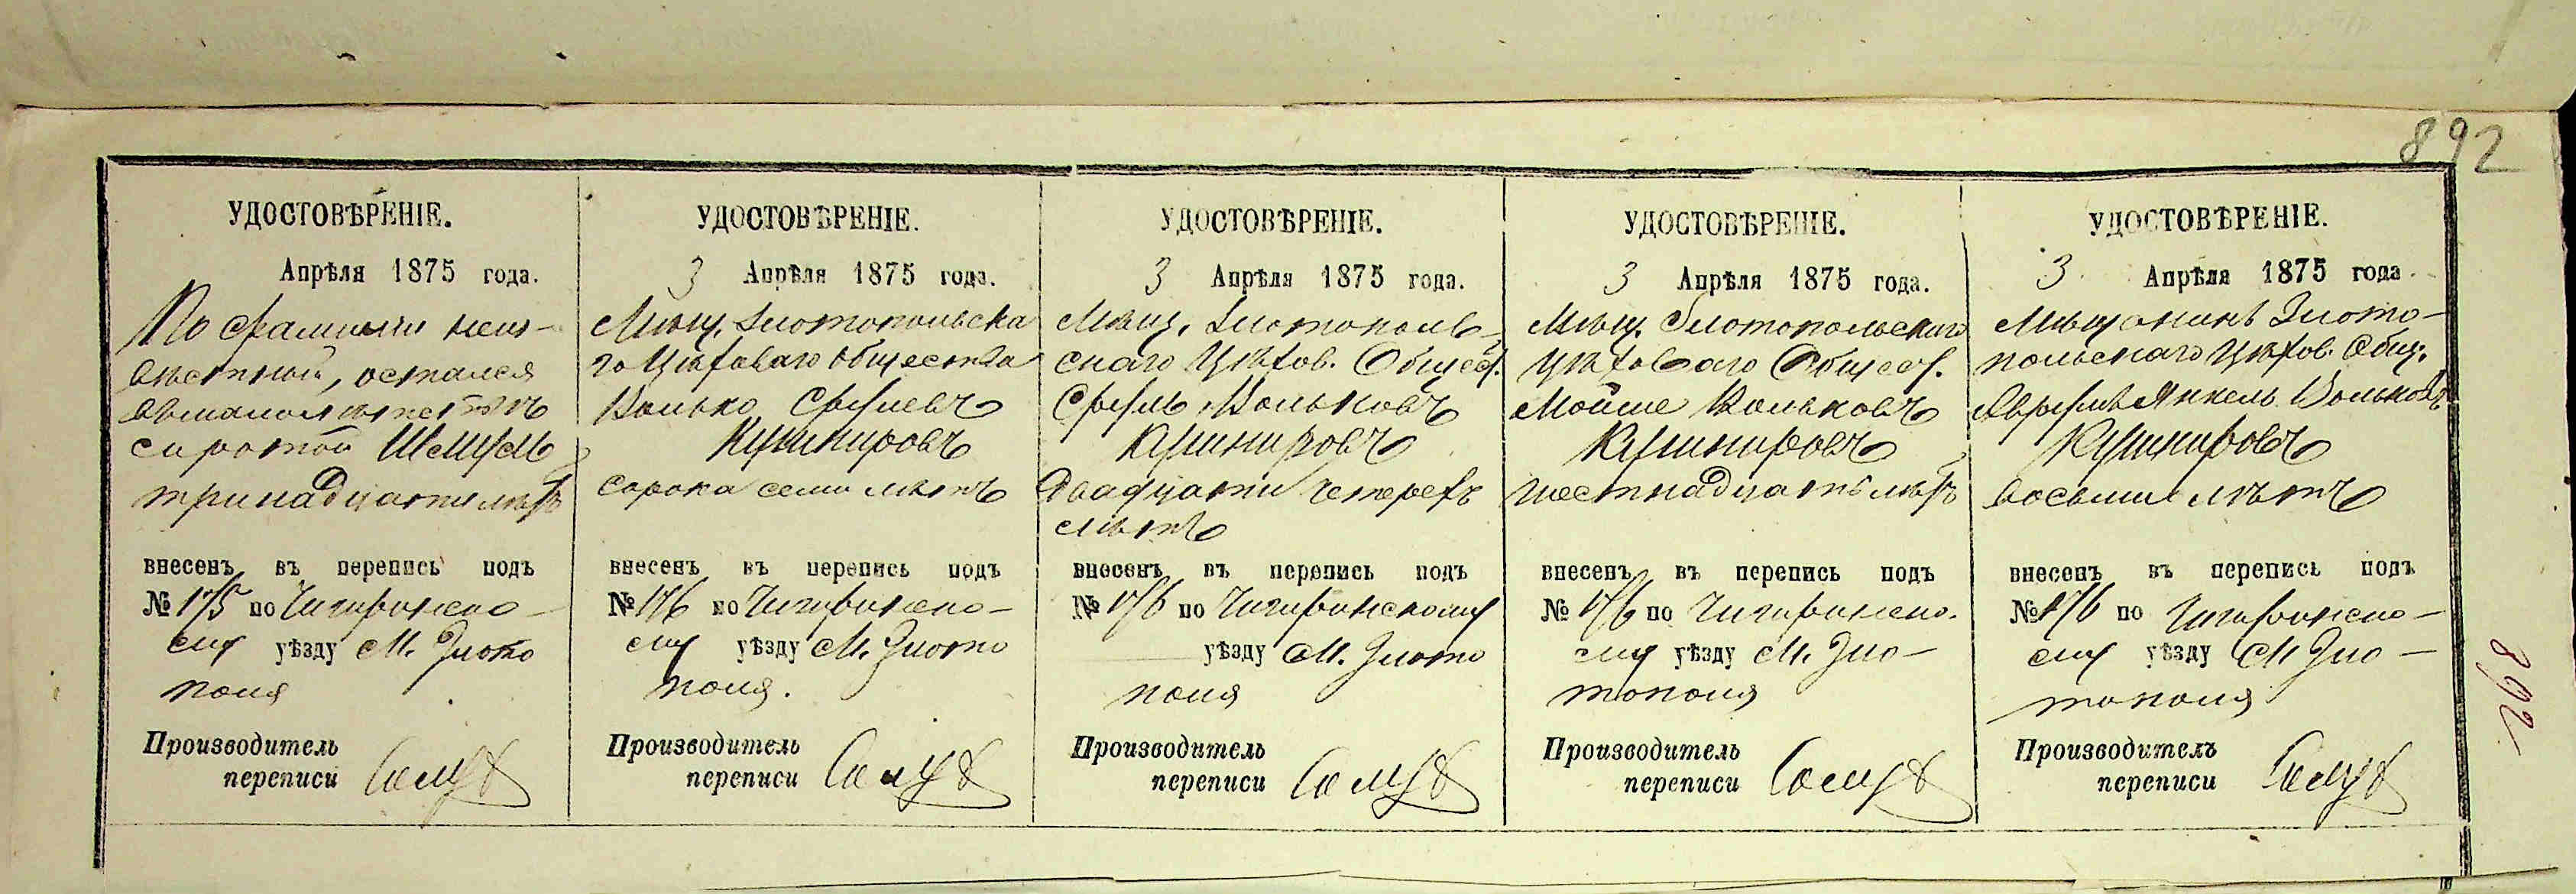 892
УДОСТОВѢРЕНІЕ.
Апрѣля 1875 года.
По фамиліи неиз-
вѣстный, остался
въ малолѣтствѣ
сиротой Шмуль
тринадцати лѣтъ
внесенъ въ перепись подъ
№ 175 по Чигиринско-
му уѣзду М. Злото
поля
Производитель
переписи
УДОСТОВѢРЕНІЕ.
3 Апрѣля 1875 года.
Мѣщ. Злотопольска
го Цѣховаго Общества
Волько Срулевъ
Кушнировъ
сорока семи лѣтъ
внесенъ въ перепись подъ
№ 176 по Чигиринско-
му уѣзду М. Злото
поля.
Производитель
переписи
УДОСТОВѢРЕНІЕ.
3 Апрѣля 1875 года.
Мѣщ. Злотополь-
скаго Цѣхов. Общест.
Сруль Вольковъ
Кушнировъ
двадцати четерехъ
лѣтъ
внесенъ въ перепись подъ
№ 176 по Чигиринскому
уѣзду М. Злото
поля
Производитель
переписи
УДОСТОВѢРЕНІЕ.
3 Апрѣля 1875 года.
Мѣщ. Злотопольскаго
Цѣховаго Общест.
Мойше Вольковъ
Кушнировъ
шестнадцати лѣтъ
внесенъ въ перепись подъ
№ 176 по Чигиринско-
му уѣзду М. Зло-
тополя
Производитель
переписи
УДОСТОВѢРЕНІЕ.
3 Апрѣля 1875 года.
Мѣщанинъ Злото-
польскаго Цѣхов. Общ.
Аврумъ Янкель Вольковъ
Кушнировъ
восьми лѣтъ
внесенъ въ перепись подъ
№ 176 по Чигиринско-
му уѣзду М. Зло-
тополя
Производитель
переписи
892